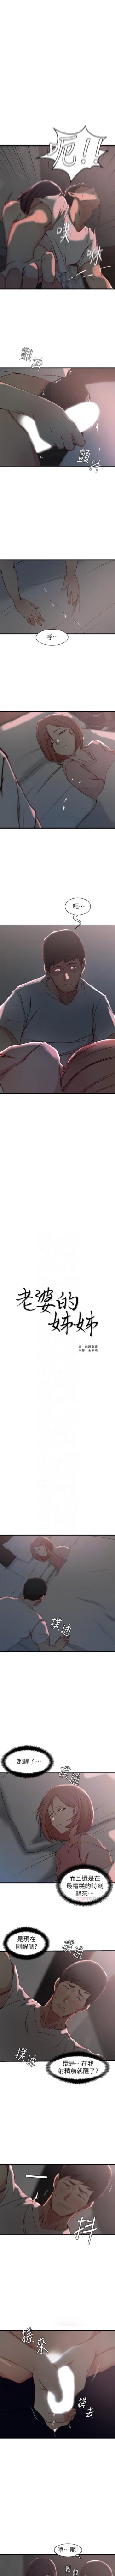 呃!!
噗
咻
顫
抖
顫
抖
呼…
呃…
老婆的
姊姊
撲通
撲通
她醒了…
撲通
而且還是在
最糟糕的時刻
醒來…
是現在
剛醒嗎?
撲通
撲通
還是…在我
射精前就醒了?
抖
搓來
搓去
唔…呃!